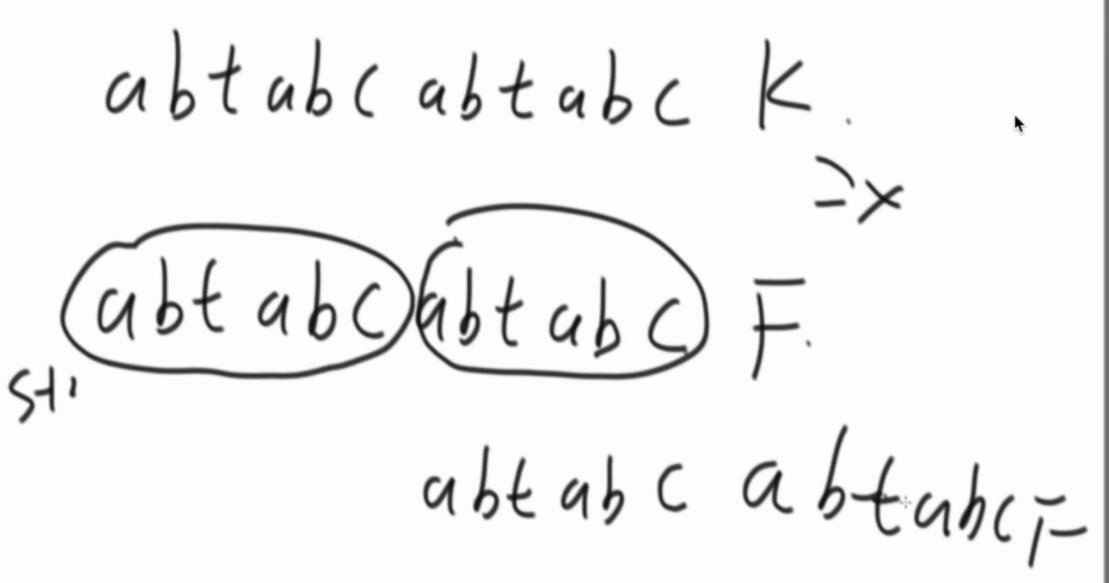 abtabc abtabc K.
=>x
abtabc abtabc F.
abtabc abtabcF